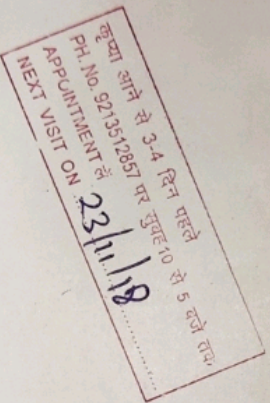 कृप्या आने से 3-4 दिन पहले
PH. No. 9213512857 पर सुबह 10 से 5 बजे तक
APPOINTMENT लें
NEXT VISIT ON 23/11/18